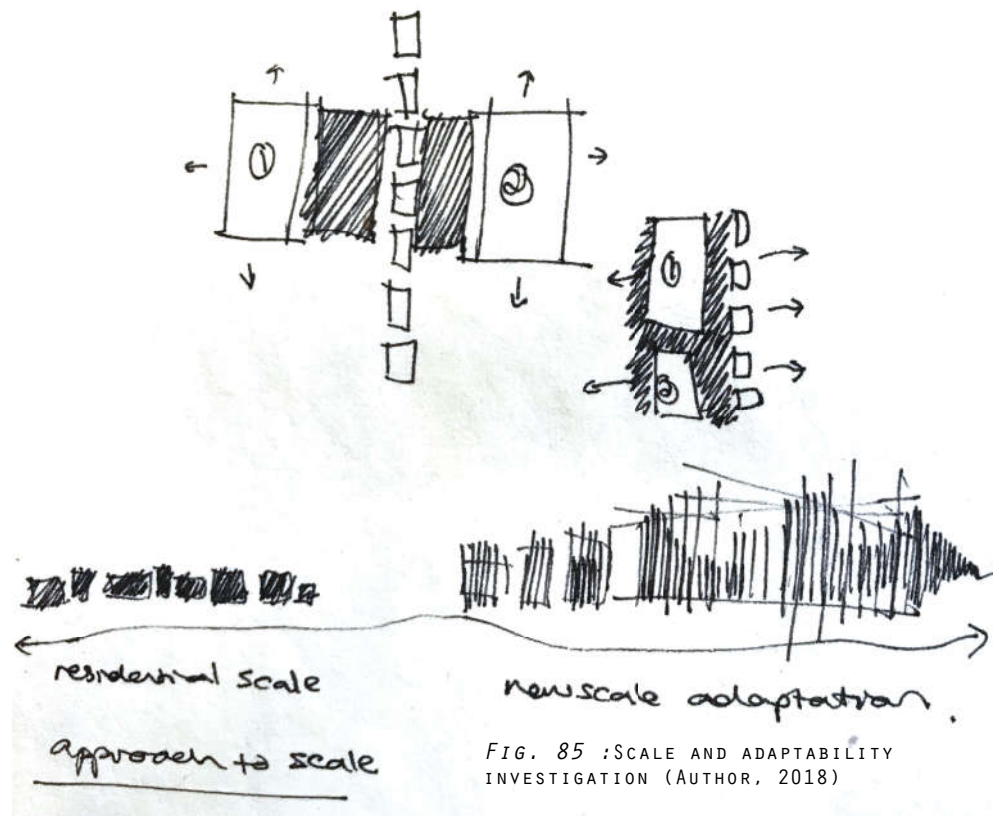 ① ②
①
②
residential scale
new scale adaptation.
approach to scale
FIG. 85 :SCALE AND ADAPTABILITY
INVESTIGATION (AUTHOR, 2018)